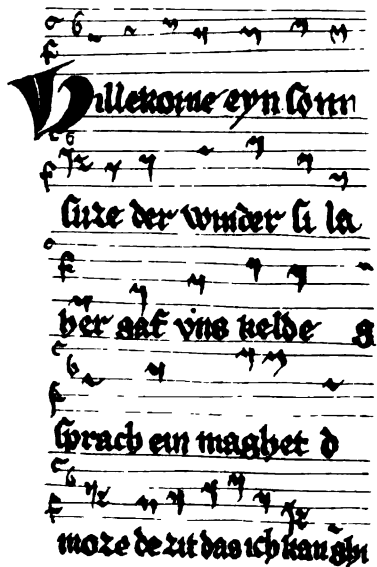 Willekome eyn som
suze der winder si la
her gaf vns kelde
sprach ein maghet d
moze de zit das ich kan ghi